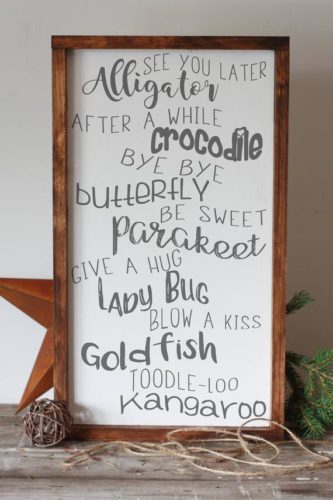 SEE YOU LATER
Alligator
AFTER A WHILE
crocodile
BYE BYE
butterfly
BE SWEET
Parakeet
GIVE A HUG
LADY BUG
BLOW A KISS
Goldfish
TOODLE-LOO
Kangaroo